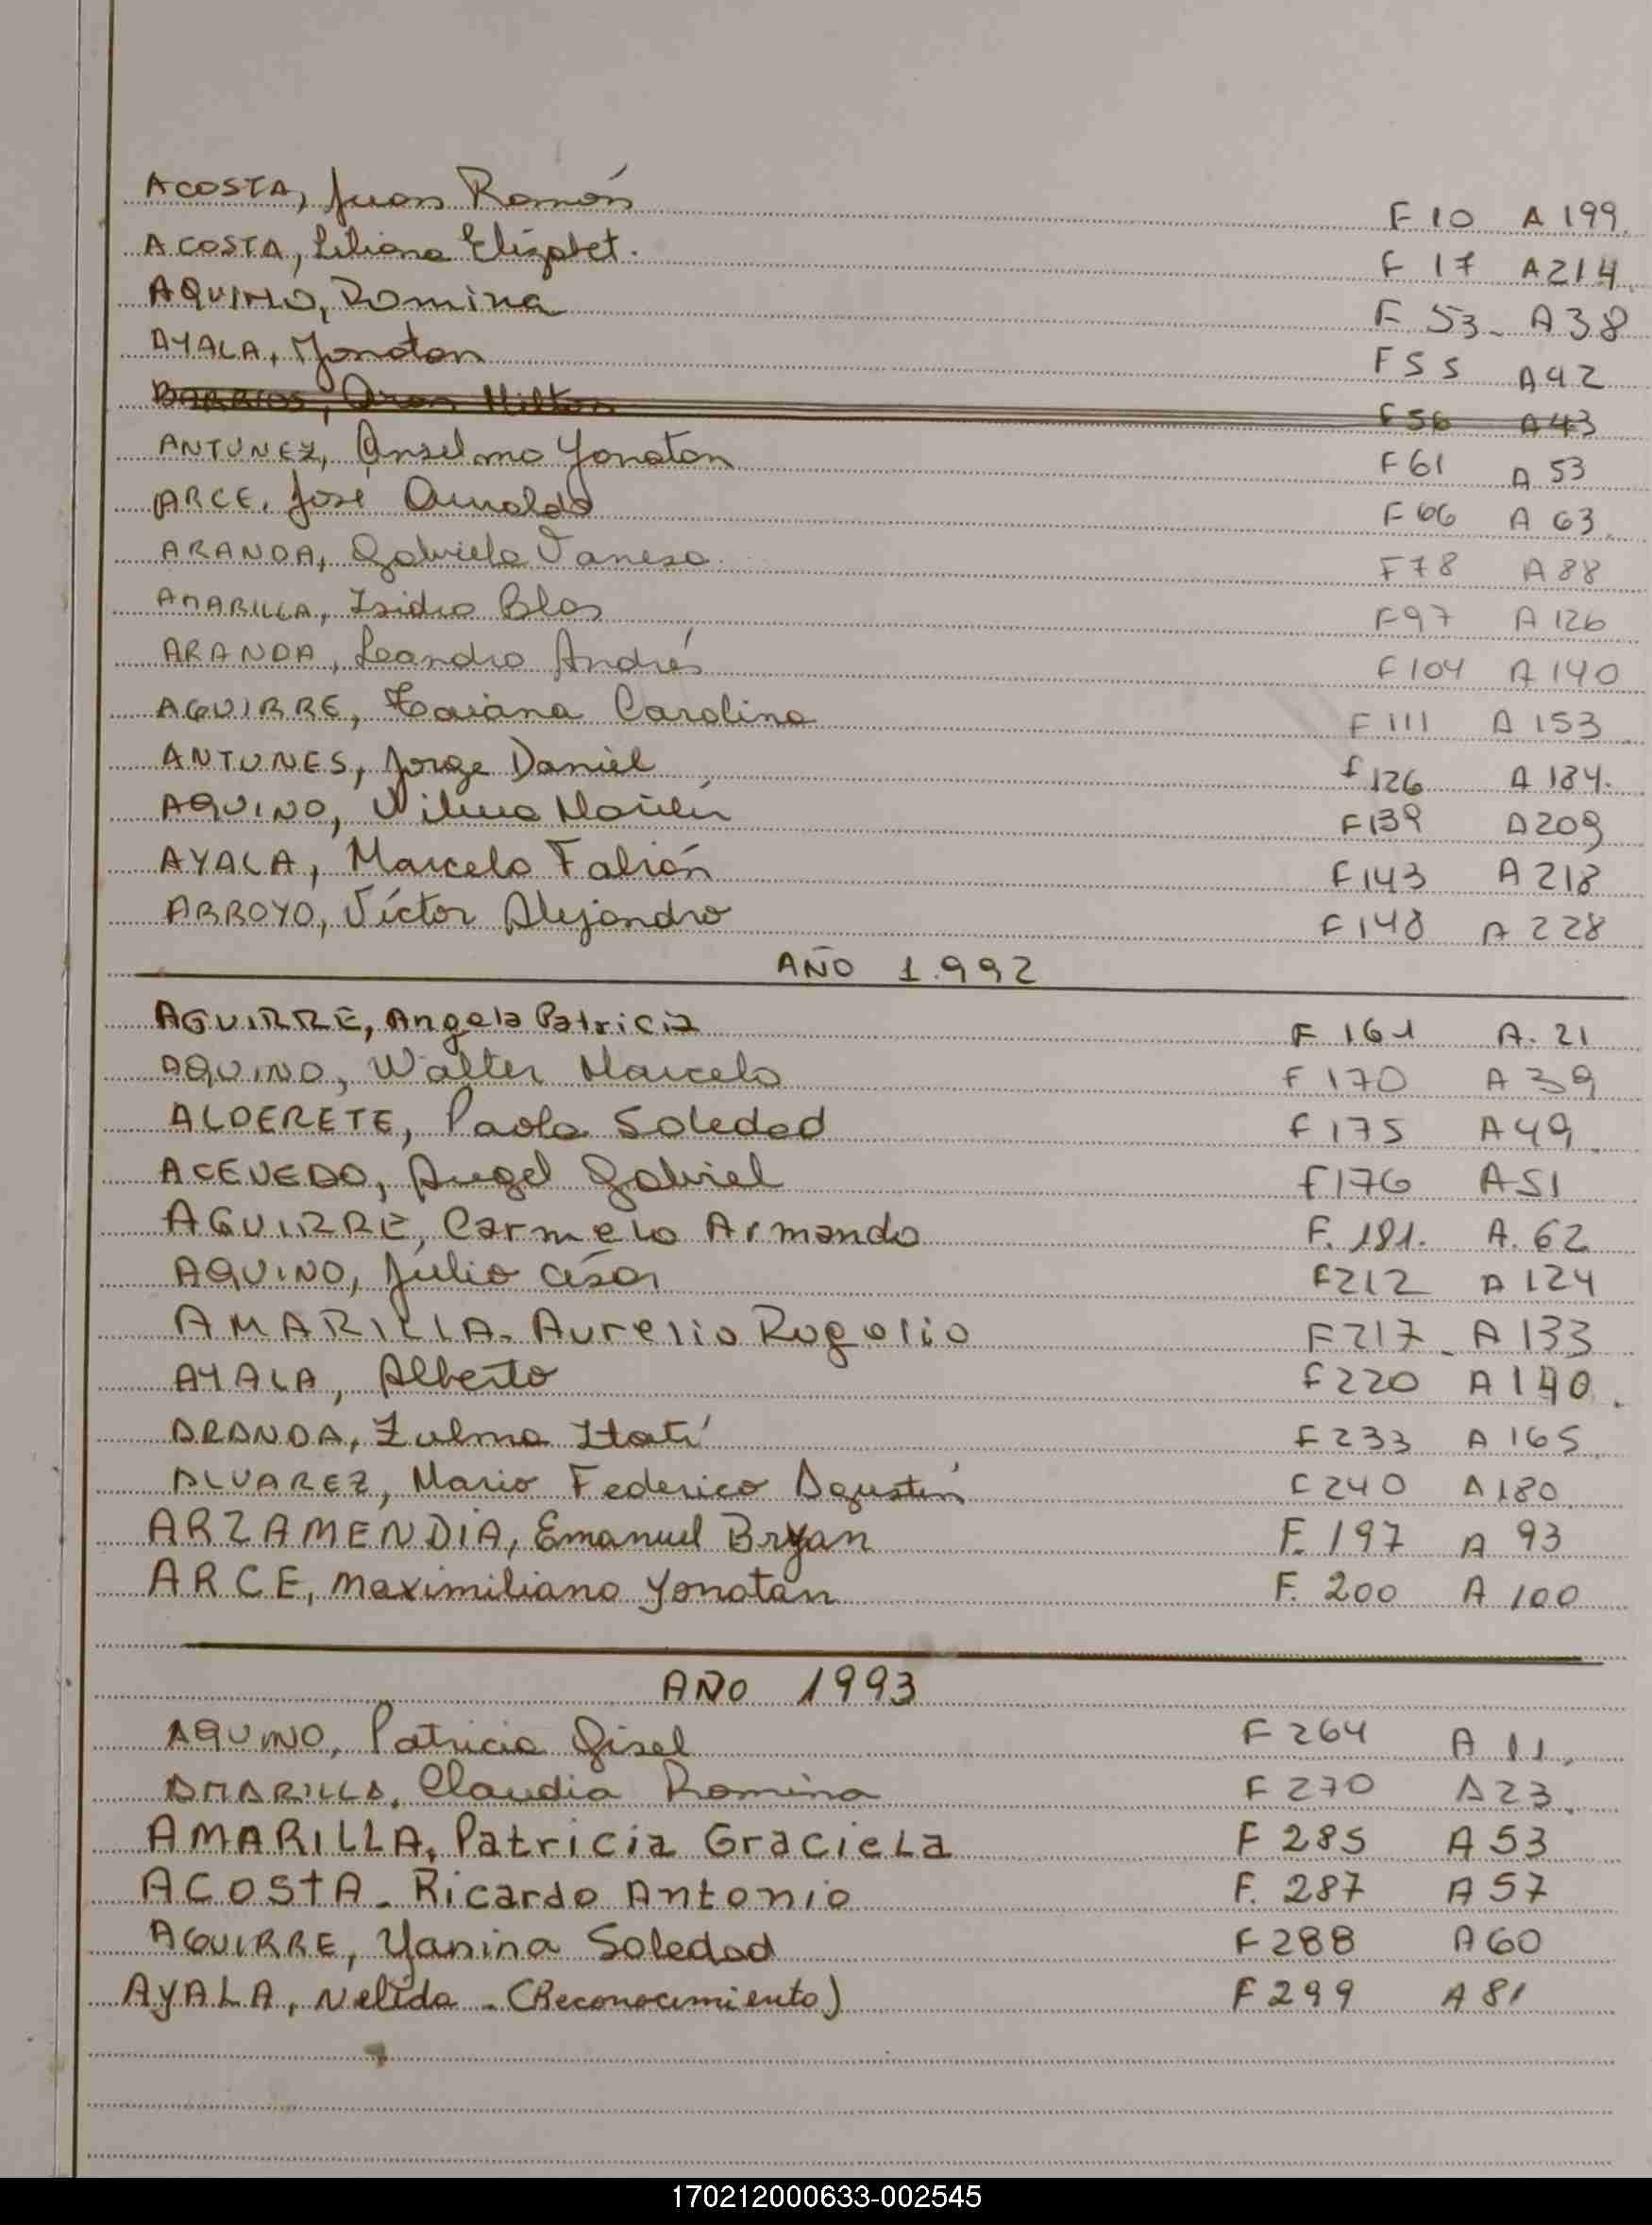 ACOSTA, Juan Ramón F 10 A 199.
ACOSTA, Liliana Elizabet. F 17 A 214.
AQUINO, Romina F 53 - A 38
AYALA, Jonatan F 55 A 42
BARRIOS, Milton F 56 A 43
ANTUNEZ, Anselmo Yonatan F 61 A 53
ARCE, José Arnaldo F 66 A 63.
ARANDA, Gabriela Vanesa F 78 A 88
AMARILLA, Isidro Blas F 97 A 126
ARANDA, Leandro Andrés F 104 A 140
AGUIRRE, Carolina F 111 A 153
ANTUNES, Jorge Daniel F 126 A 184.
AQUINO, F 139 A 209
AYALA, Marcelo Fabián F 143 A 218
ARROYO, Víctor Alejandro F 148 A 228
AÑO 1.992
AGUIRRE, Angela Patricia F 161 A. 21
AQUINO, Walter Marcelo F 170 A 39
ALDERETE, Paola Soledad F 175 A 49
ACEVEDO, Angel Gabriel F 176 A 51
AGUIRRE, Carmelo Armando F. 181. A. 62
AQUINO, Julio César F 212 A 124
AMARILLA - Aurelio Rogelio F 217 - A 133
AYALA, Alberto F 220 A 140.
ARANDA, Zulma Itatí F 233 A 165
ALVAREZ, Mario Federico Agustín F 240 A 180
ARZAMENDIA, Emanuel Bryan F. 197 A 93
ARCE, Maximiliano Yonotan F. 200 A 100
AÑO 1993
AQUINO, Patricia Gisel F 264 A 11.
AMARILLA, Claudia Romina F 270 A 23.
AMARILLA, Patricia Graciela F 285 A 53
ACOSTA - Ricardo Antonio F. 287 A 57
AGUIRRE, Yanina Soledad F 288 A 60
AYALA, Nelida - (Reconocimiento) F 299 A 81
170212000633-002545